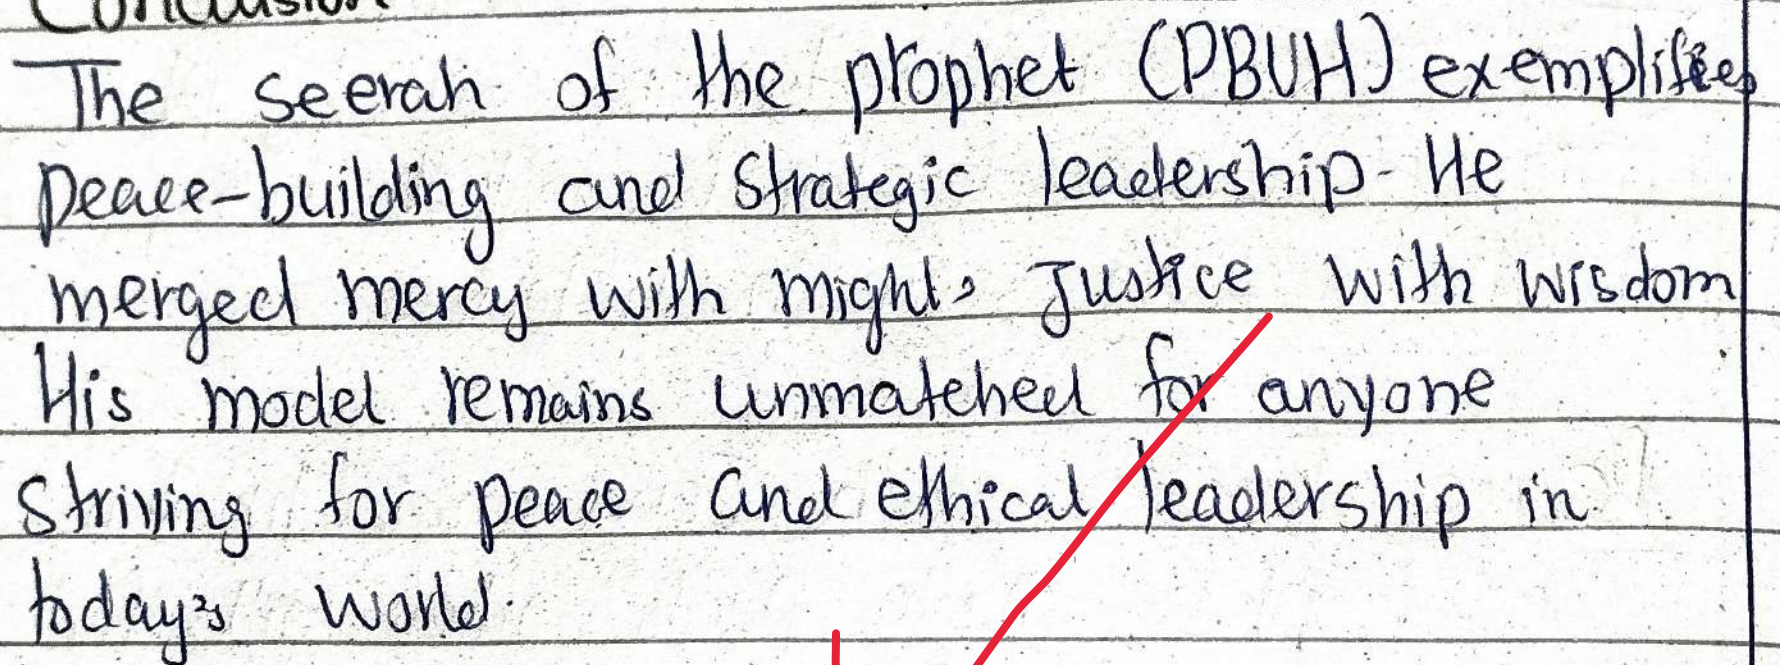 Conclusion
The seerah of the prophet (PBUH) exemplifies
peace-building and strategic leadership. He
merged mercy with might, Justice with wisdom
His model remains unmatched for anyone
striving for peace and ethical leadership in
today's world.